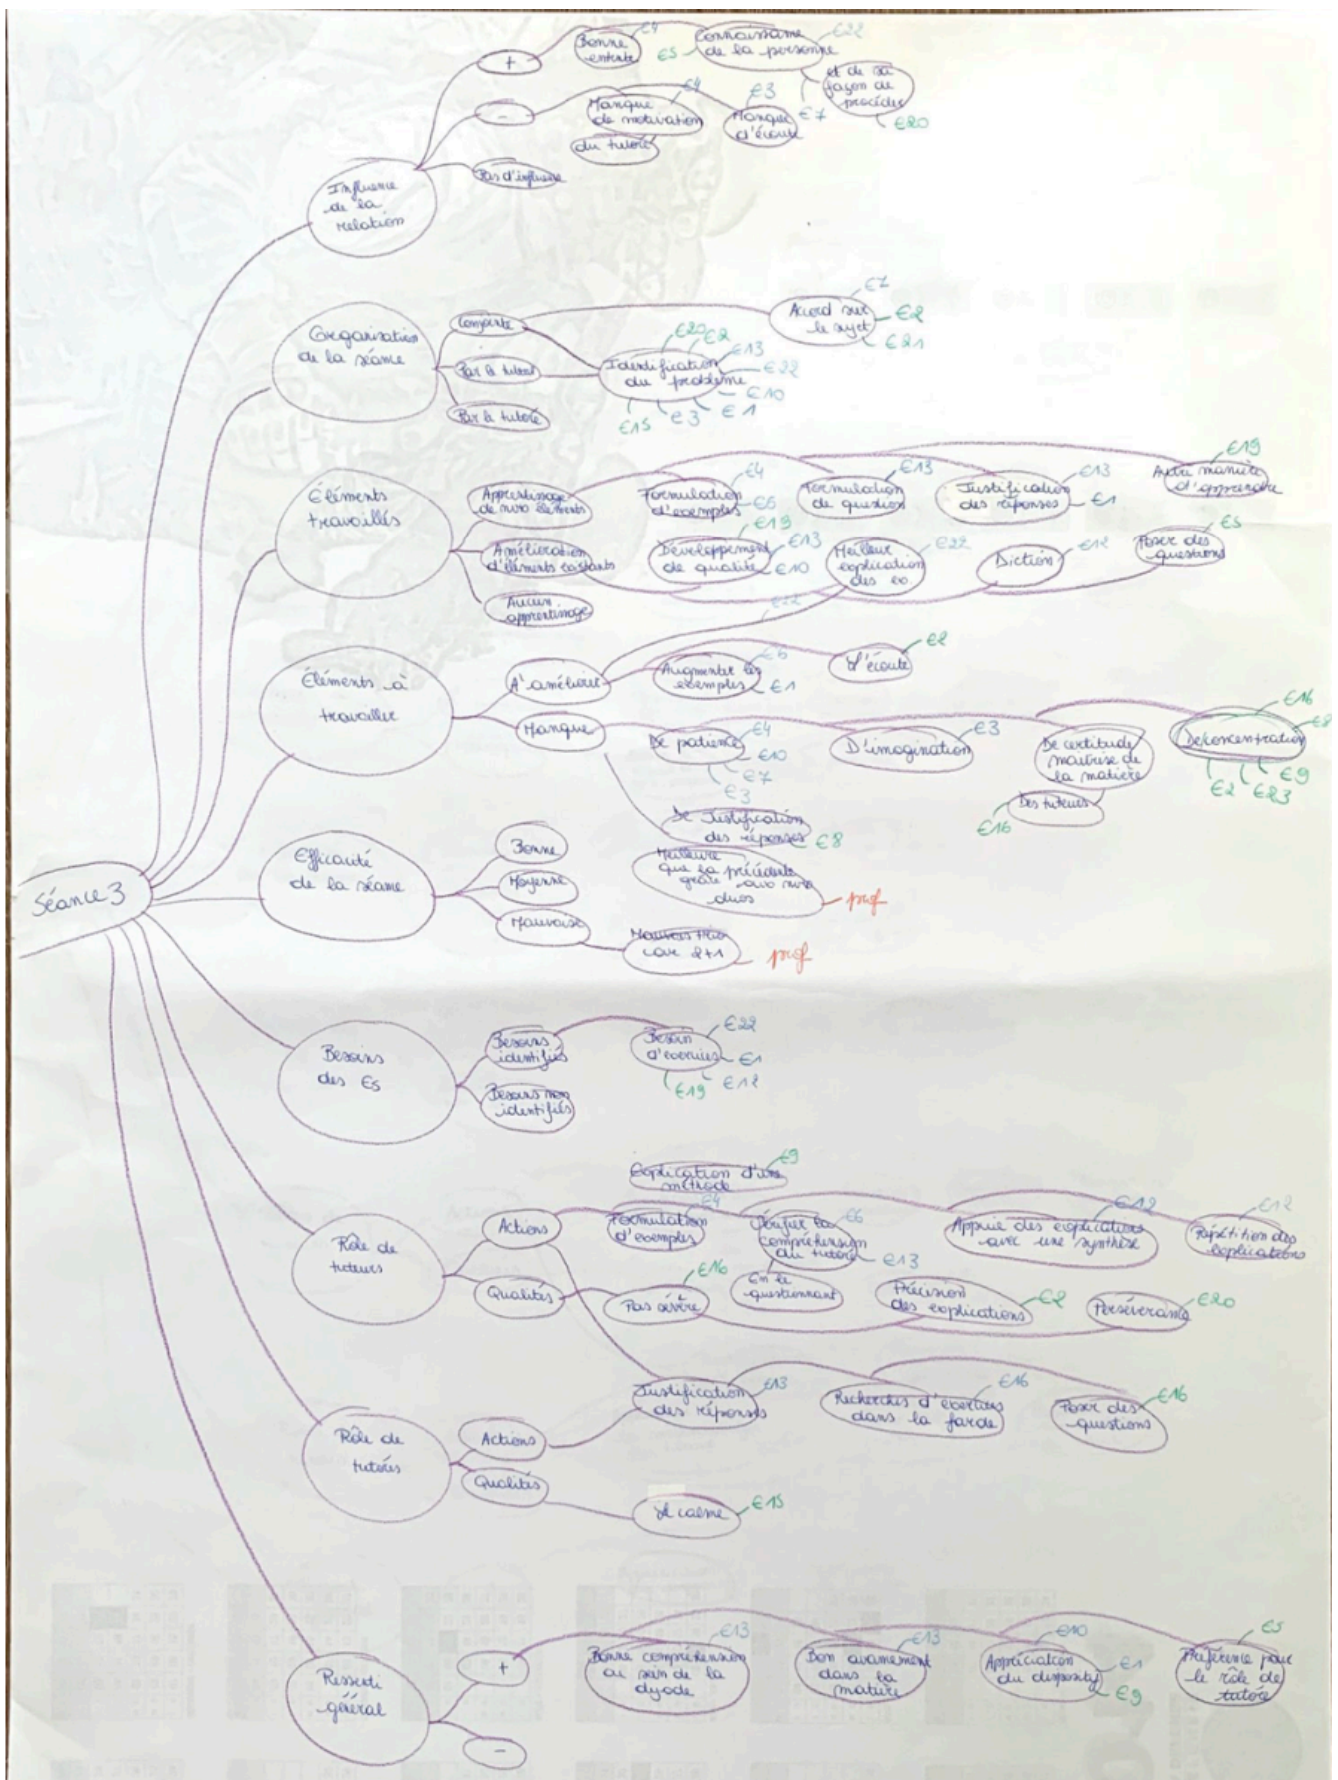 +
Bonne
entente
E4
Connaissance
de la personne
E22
E5
E7
et de sa
façon de
procéder
E20
-
Manque
de motivation
E4
du tutoré
Manque
d'écoute
E3
Pas d'influence
Influence
de la
relation
Organisation
de la séance
Conjointe
Par le tuteur
Par le tutoré
Accord sur
le sujet
E7
E2
E21
Identification
du problème
E20
E2
E13
E22
E10
E1
E3
E15
Éléments
travaillés
Apprentissage
de nvx éléments
Formulation
d'exemples
E4
E6
Formulation
de question
E13
Justification
des réponses
E13
E1
Autre manière
d'apprendre
E19
Amélioration
d'éléments existants
Développement
de qualité
E19
E13
E10
Meilleur
explication
des ex.
E22
Diction
E12
Poser des
questions
E5
Aucun
apprentissage
E22
Éléments à
travailler
A améliorer
Augmenter les
exemples
E6
E1
L'écoute
E2
Manque
De patience
E4
E10
E7
E3
D'imagination
E3
De certitude
maîtrise de
la matière
Des tuteurs
E16
De concentration
E16
E8
E9
E23
E2
De justification
des réponses
E8
Séance 3
Efficacité
de la séance
Bonne
Moyenne
Mauvaise
Meilleure
que la précédente
grâce aux nvx
duos
prof
Mauvais trio
car 2+1
prof
Besoins
des Es
Besoins
identifiés
Besoin
d'exercices
E22
E1
E12
E19
Besoins non
identifiés
Explication d'une
méthode
E9
Rôle de
tuteurs
Actions
Formulation
d'exemples
E4
Vérifier la
compréhension
du tutoré
E6
E13
En le
questionnant
Appuie des explications
avec une synthèse
E12
Répétition des
explications
E12
Qualités
Pas sévère
E16
Précision
des explications
E2
Persévérance
E20
Rôle de
tutorés
Actions
Justification
des réponses
E13
Recherches d'exercices
dans la farde
E16
Poser des
questions
E16
Qualités
Le calme
E15
Ressenti
général
+
Bonne compréhension
au sein de la
dyade
E13
Bon avancement
dans la
matière
E13
Appréciation
du dispositif
E10
E1
E9
Préférence pour
le rôle de
tutoré
E5
-